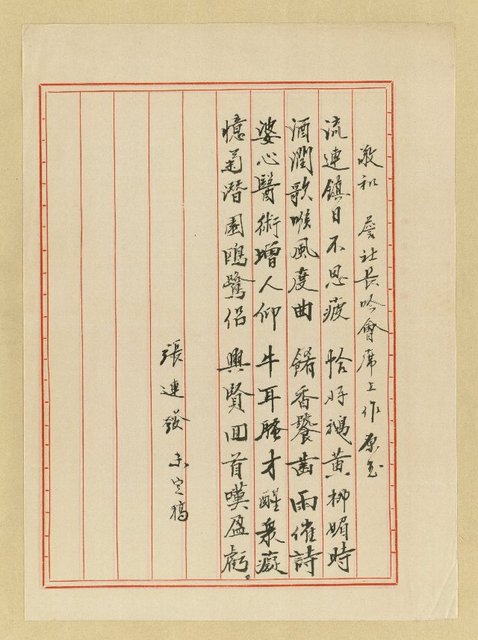 敬和 詹社長吟會席上作原玉
流連鎮日不思疲 恰好鵝黃柳媚時
酒潤歌喉風度曲 餚香饕齒雨催詩
婆心醫術增人仰 牛耳騷才醒衆癡
憶菊潛園鷗鷺侶 興賢回首嘆盈虧。
張連發 未定稿